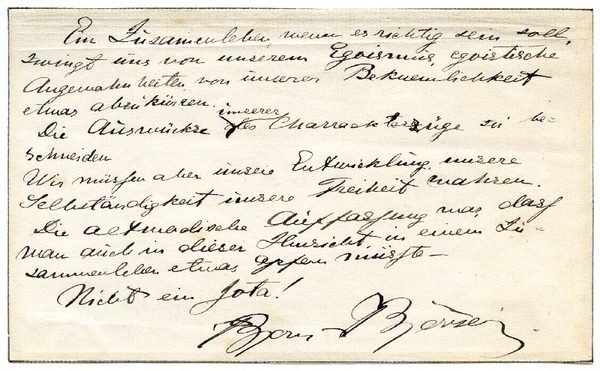 Ein Zusamenleben, wenn es richtig sein soll,
zwingt uns von unserem Egoismus, egoistische
Angewohnheiten, von unserer Bekuemlichkeit
etwas abzukürzen.
Die Auswückse unserer Charrackterzüge zu be-
schneiden
Wir müssen aber unsere Entwicklung, unsere
Selbständigkeit unsere Freiheit wahren.
Die altmodische Auffassung was darf
man auch in dieser Hinsicht in einem Zu-
sammenleben etwas opfern müsste—
Nicht ein Jota!
Bjørn Bjørnson